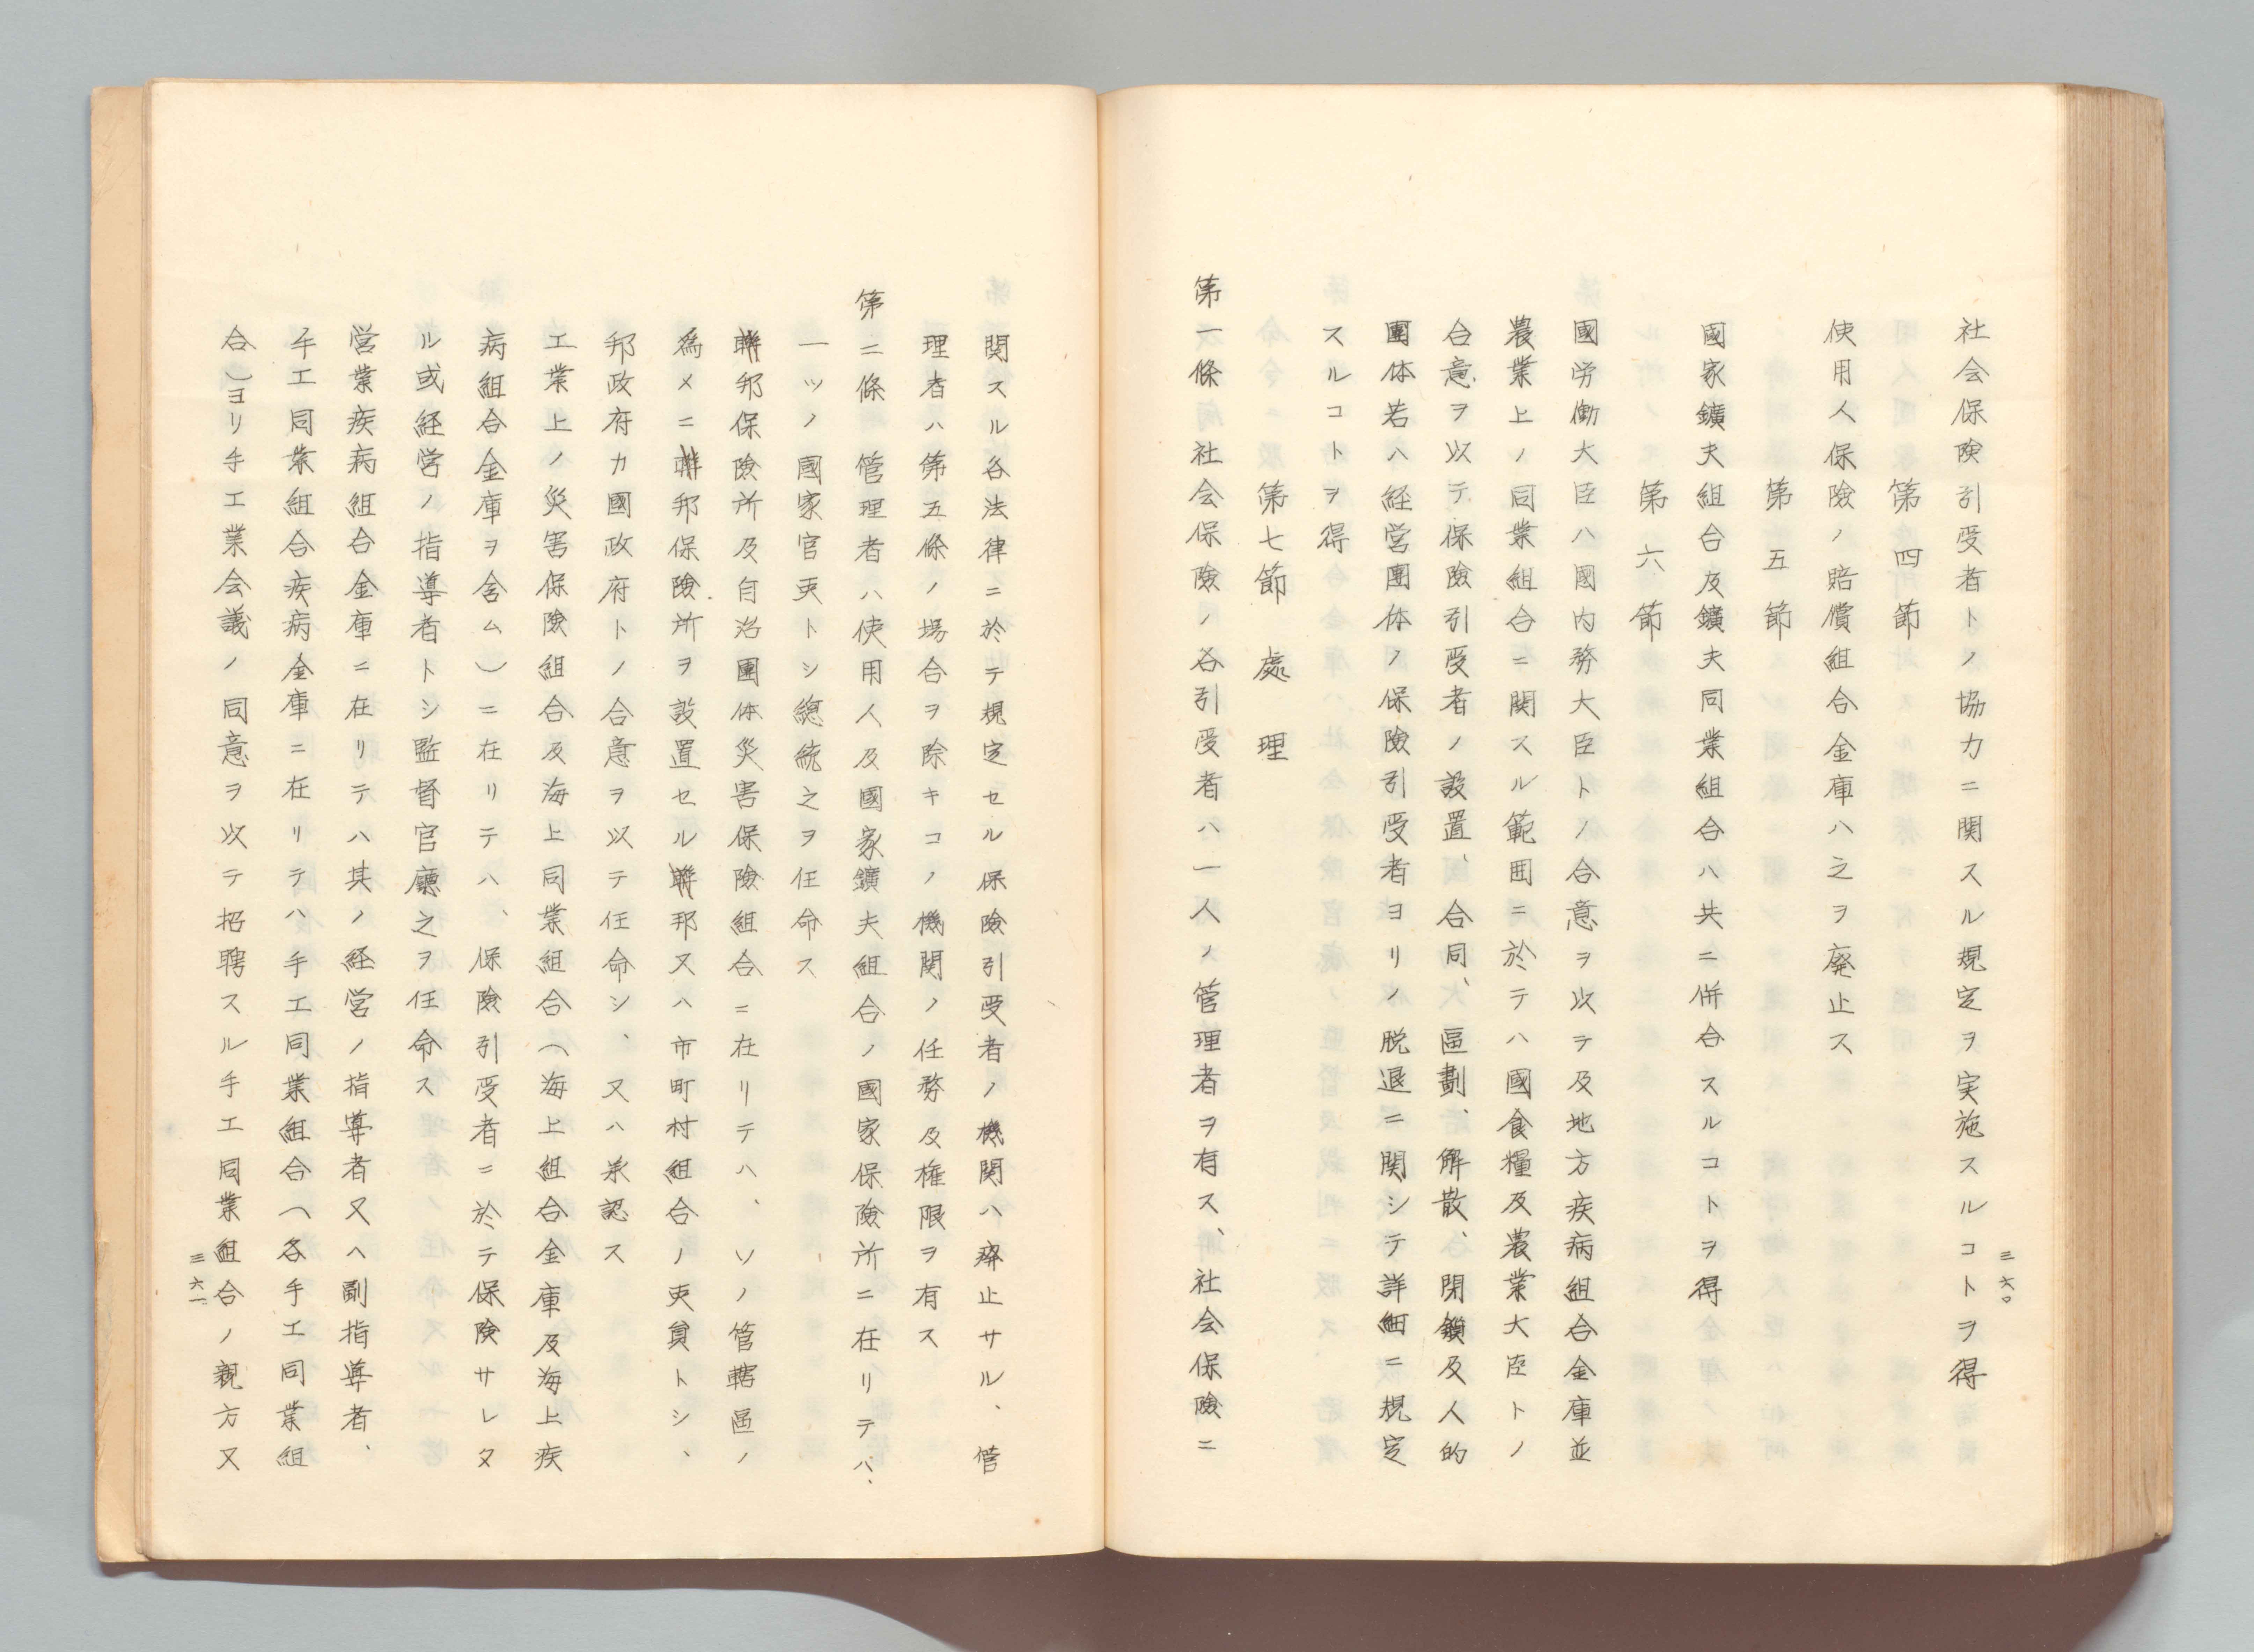 社会保険引受者トノ協力ニ関スル規定ヲ実施スルコトヲ得
第四節
使用人保險ノ賠償組合金庫ハ之ヲ廃止ス
第五節
國家鑛夫組合及鑛夫同業組合ハ共ニ併合スルコトヲ得
第六節
國労働大臣ハ國内務大臣トノ合意ヲ以テ及地方疾病組合金庫並
農業上ノ同業組合ニ関スル範囲ニ於テハ國食糧及農業大臣トノ
合意ヲ以テ保險引受者ノ設置、合同、區劃、解散、閉鎖及人的
團体若ハ経営團体ノ保險引受者ヨリノ脱退ニ関シテ詳細ニ規定
スルコトヲ得
第七節 處理
第一條 社会保險ノ各引受者ハ一人ノ管理者ヲ有ス、社会保險ニ
三六〇
関スル各法律ニ於テ規定セル保險引受者ノ機関ハ廃止サル、管
理者ハ第五條ノ場合ヲ除キコノ機関ノ任務及権限ヲ有ス
第二條 管理者ハ使用人及國家鑛夫組合ノ國家保險所ニ在リテハ、
一ツノ國家官吏トシ總統之ヲ任命ス
聯邦保險所及自治團体災害保險組合ニ在リテハ、ソノ管轄區ノ
為メニ聯邦保險所ヲ設置セル聯邦又ハ市町村組合ノ吏員トシ、
邦政府カ國政府トノ合意ヲ以テ任命シ、又ハ承認ス
工業上ノ災害保險組合及海上同業組合(海上組合金庫及海上疾
病組合金庫ヲ含ム)ニ在リテハ、保險引受者ニ於テ保険サレタ
ル或経営ノ指導者トシ監督官廳之ヲ任命ス
営業疾病組合金庫ニ在リテハ其ノ経営ノ指導者又ハ副指導者、
手工同業組合疾病金庫ニ在リテハ手工同業組合(各手工同業組
合)ヨリ手工業会議ノ同意ヲ以テ招聘スル手工同業組合ノ親方又
三六一